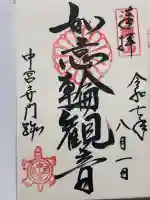 奉拝
令和七年
八月一日
如意輪観音
中宮寺門跡